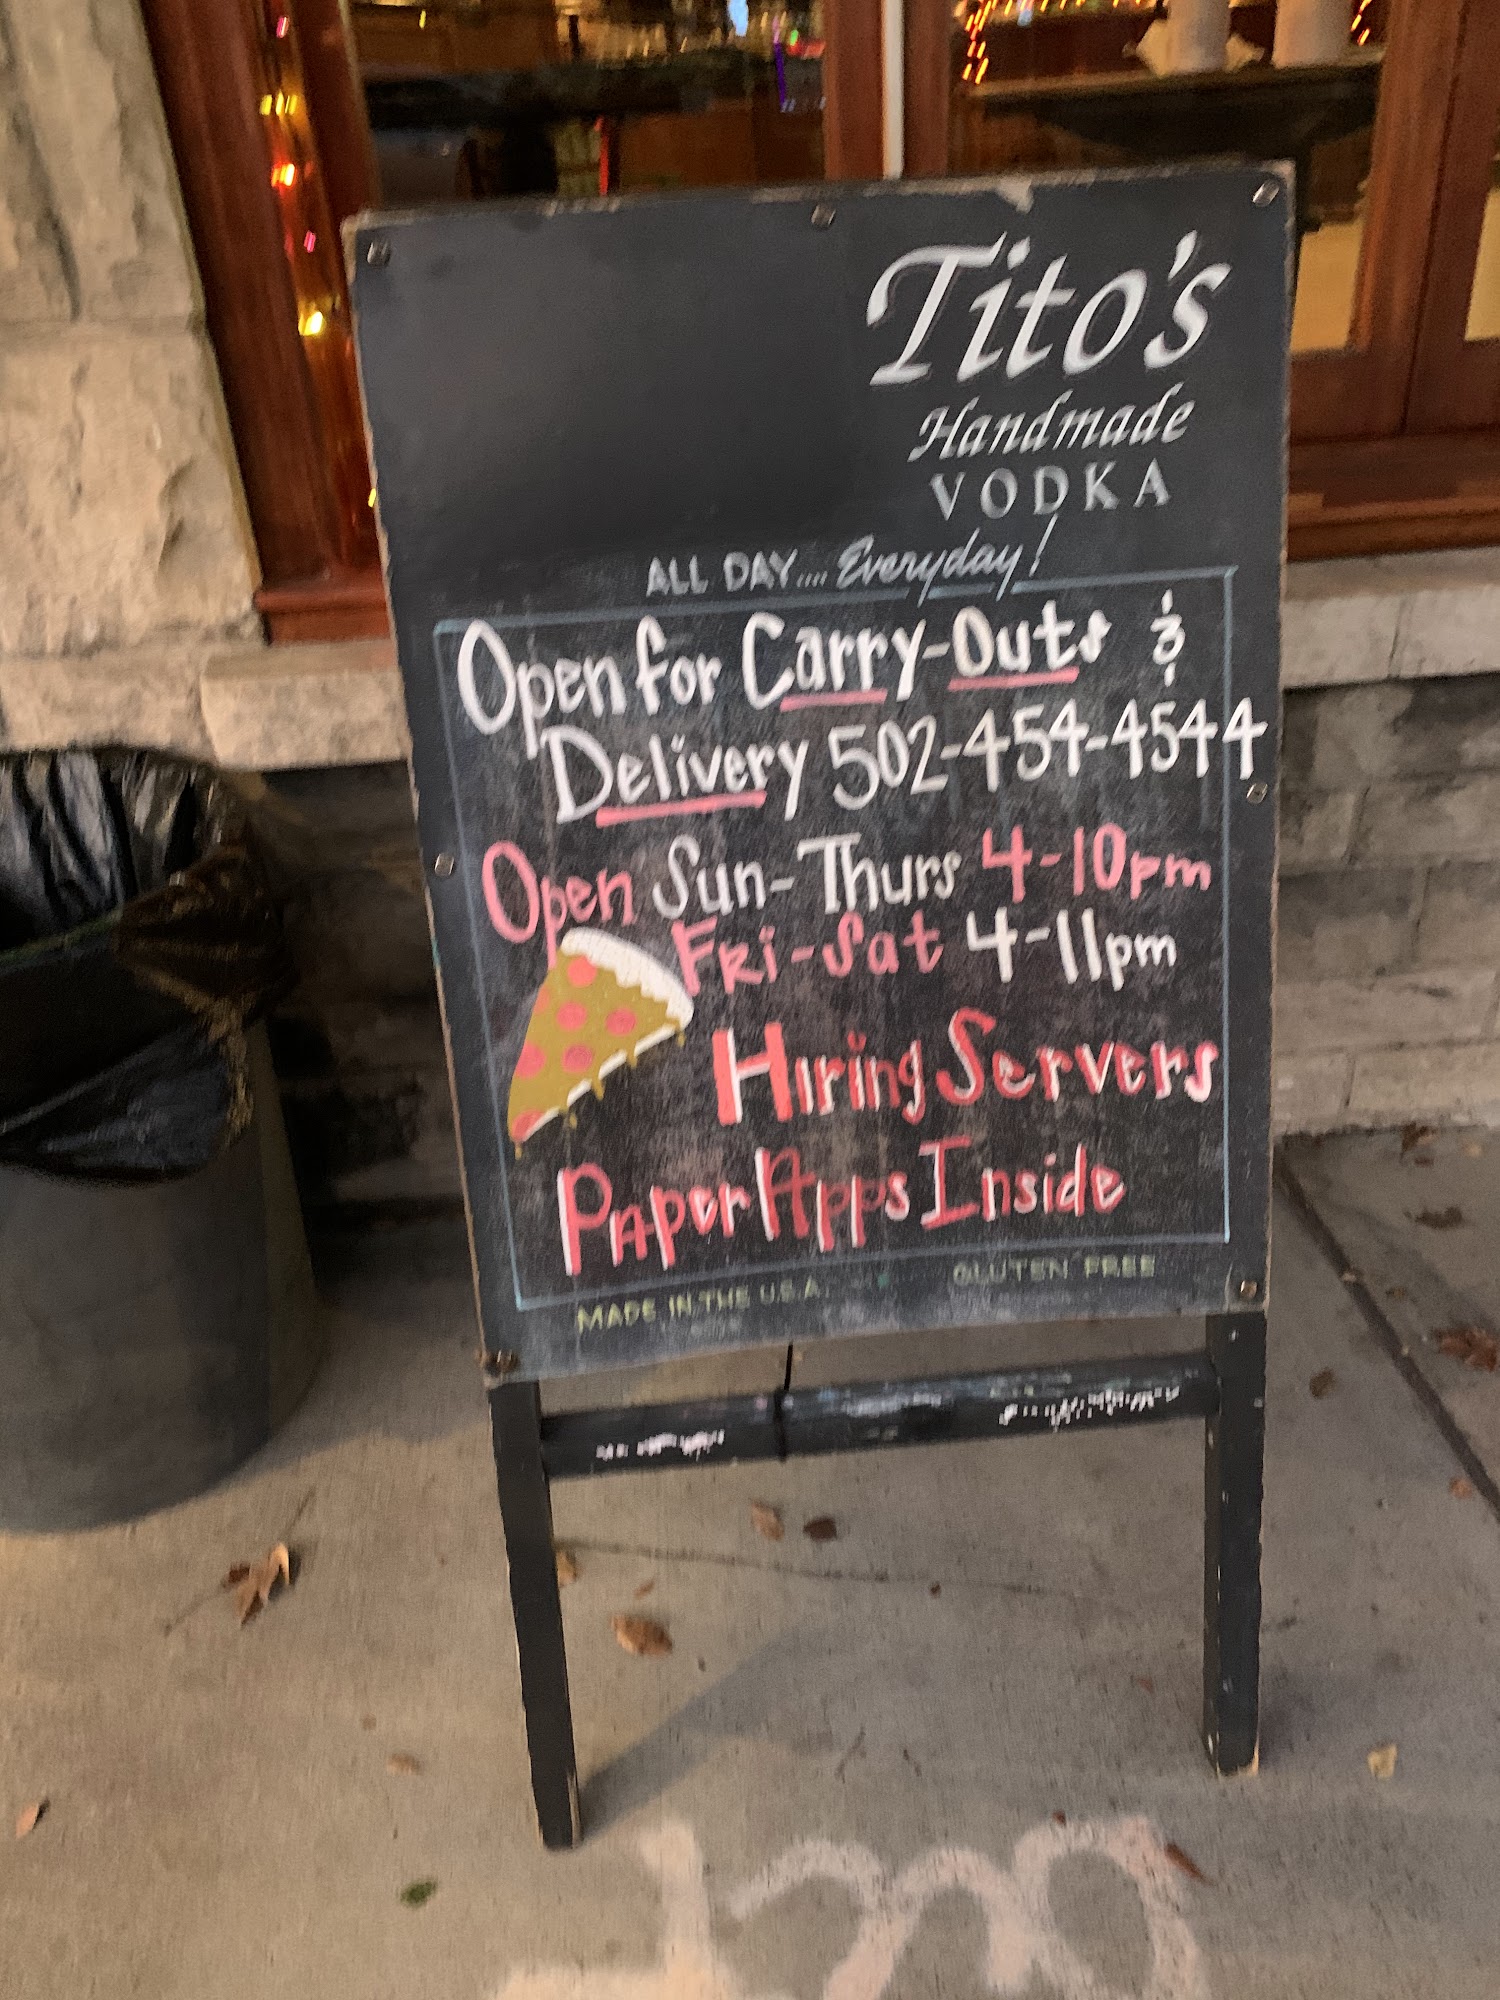 Tito's
Handmade
VODKA
ALL DAY.... Everyday!
Open for Carry-Outs &
Delivery 502-454-4544
Open Sun-Thurs 4-10pm
Fri-Sat 4-11pm
Hiring Servers
Paper Apps Inside
MADE IN THE U.S.A.
GLUTEN FREE